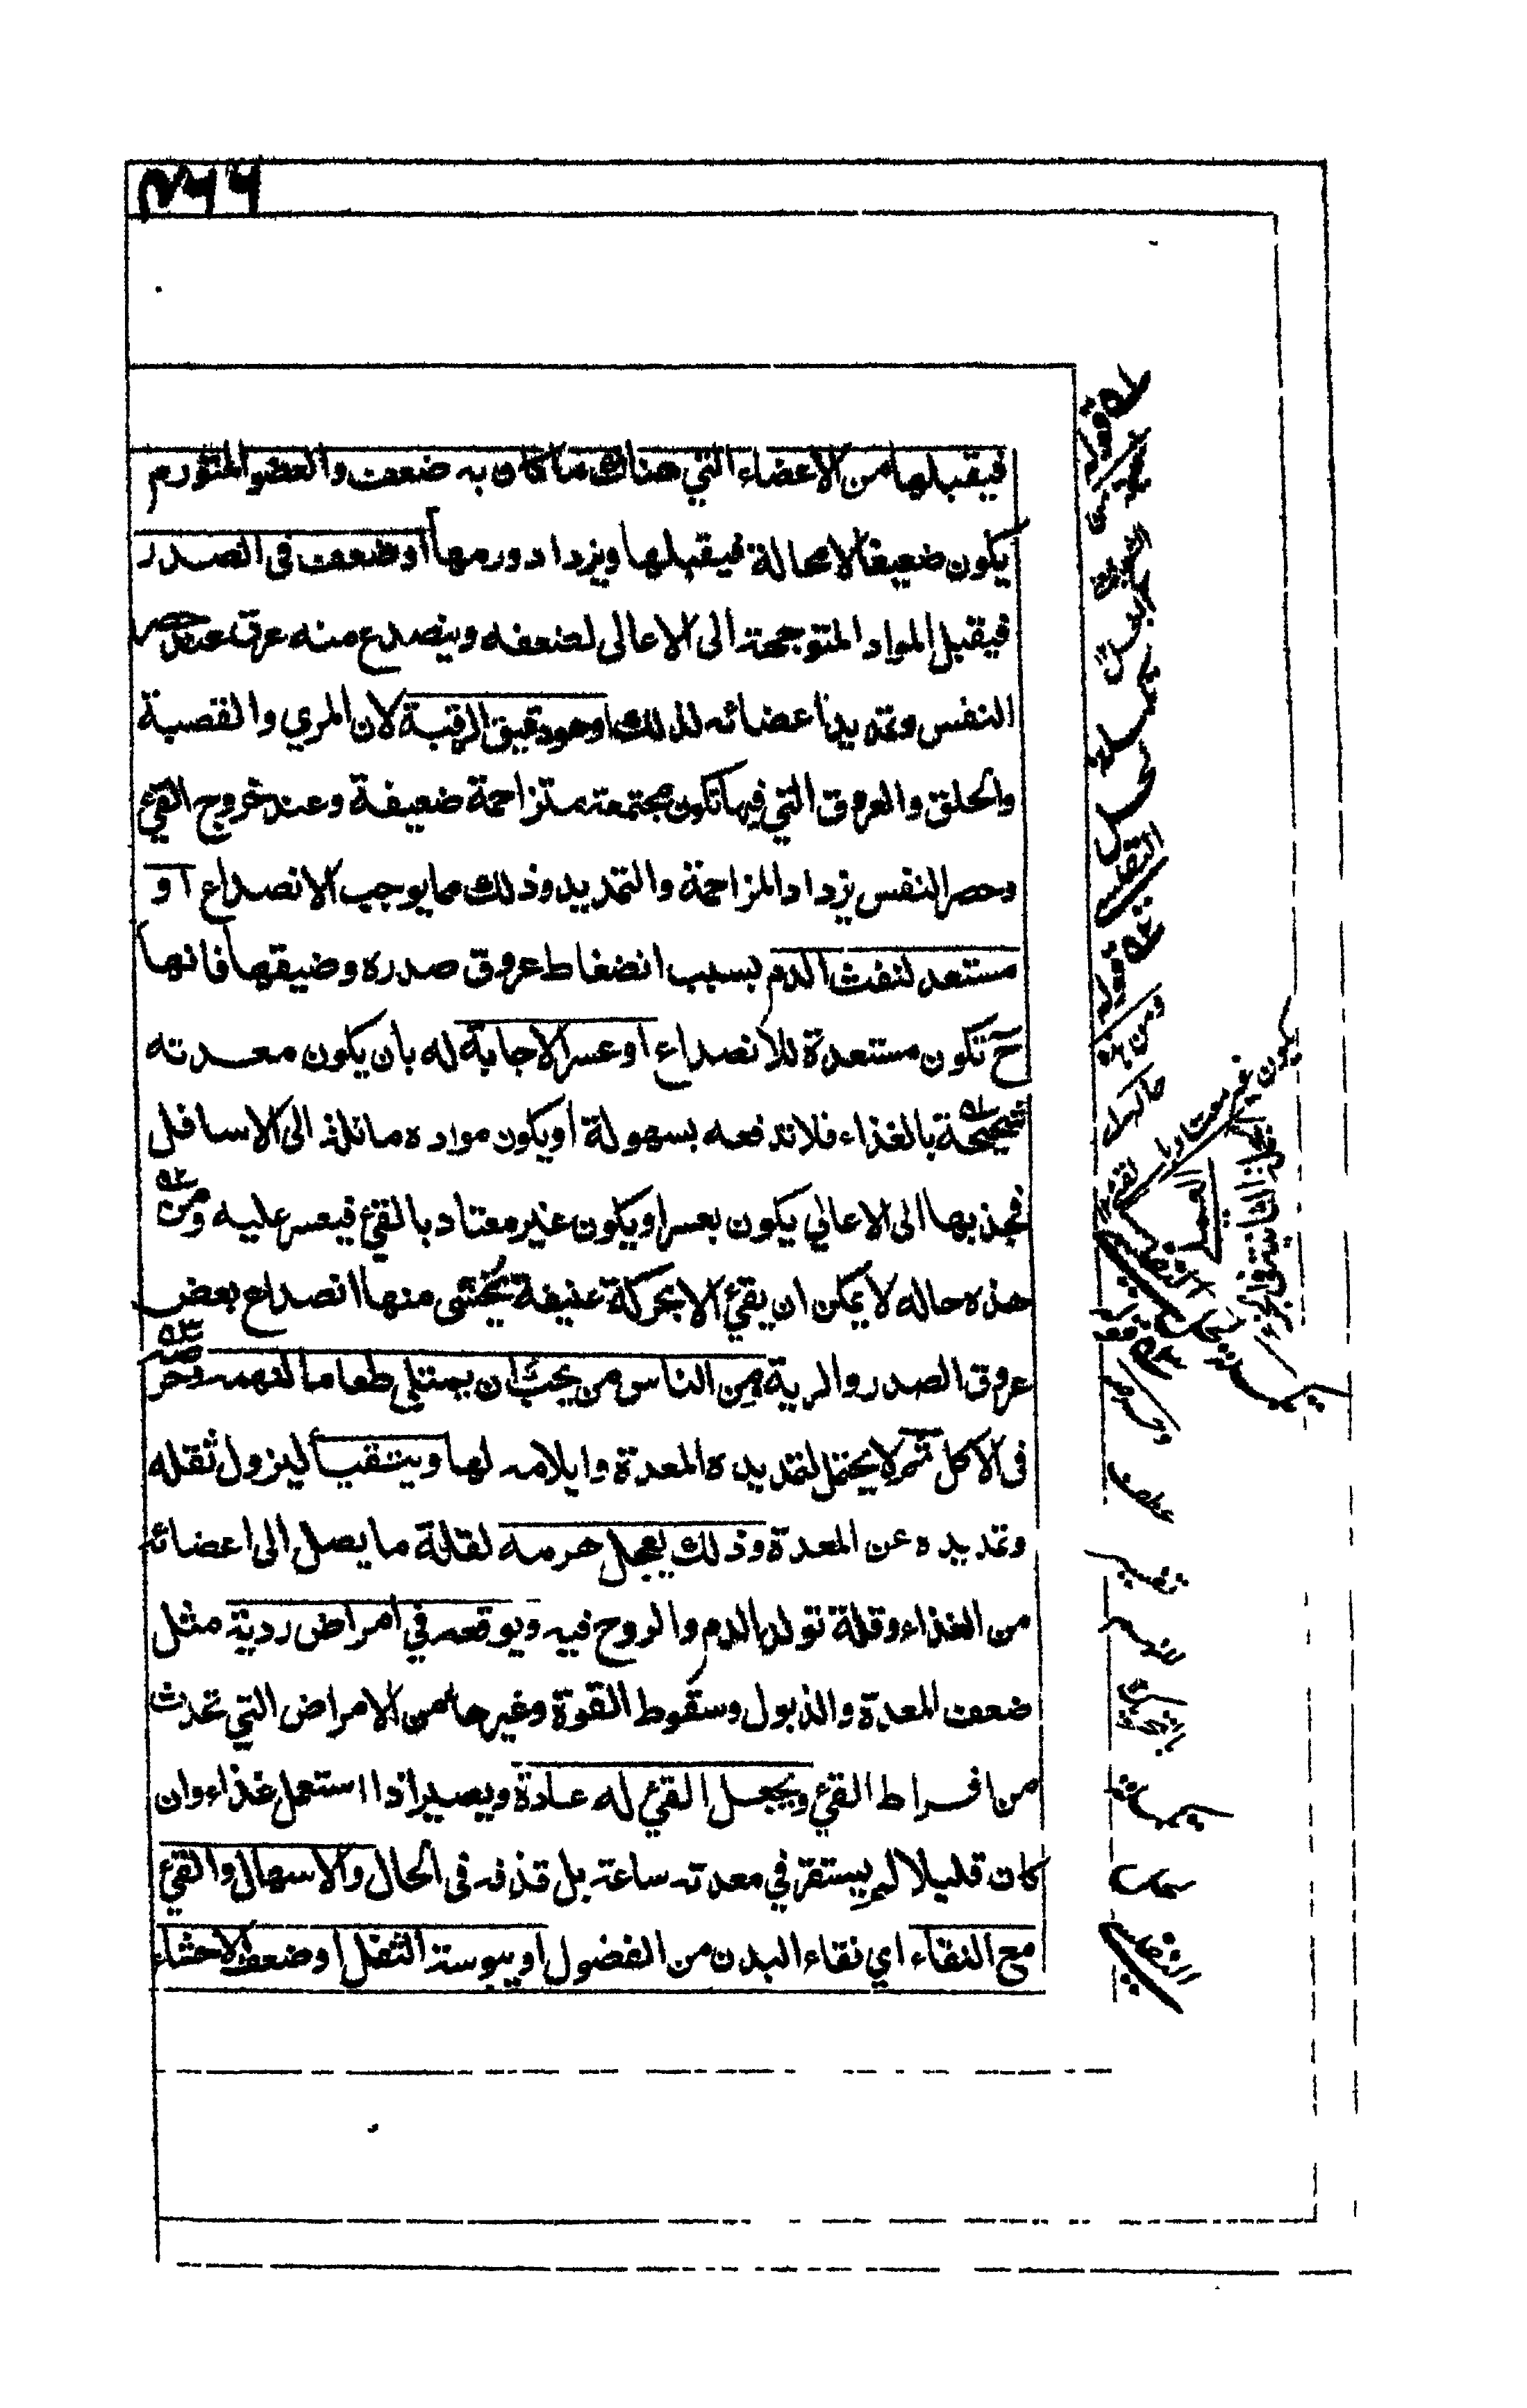 فيقبلها من الاعضاء التي هناك ما كان به ضعف والعضو المتورم
يكون ضعيفا لا محالة فيقبلها ويزداد ورمها او ضعف فى الصدر
فيقبل المواد المتوجهة الى الاعالى لضعفه وينصدع منه عرق عند حصر
النفس وتمديد اعضائه لذلك او هو دقيق الرقبة لان المري والقصبة
والحلق والعروق التي فيها تكون مجتمعة متزاحمة ضعيفة وعند خروج القئ
وحصر النفس يزداد المزاحمة والتمديد وذلك مما يوجب الانصداع او
مستعد لنفث الدم بسبب انضغاط عروق صدره وضيقها فانها
ح تكون مستعدة للانصداع او عسر الاجابة له بان يكون معدته
شحيحة بالغذاء فلا تدفعه بسهولة او يكون مواده مائلة الى الاسافل
فجذبها الى الاعالي يكون بعسر او يكون غير معتاد بالقئ فيعسر عليه ومن
هذه حاله لا يمكن ان يقئ الا بحركة عنيفة يخشى منها انصداع بعض
عروق الصدر والرية ومن الناس من يحب ان يمتلي طعاما لنهمه وحرصه
فى الاكل ثم لا يحتمل لتمديده المعدة وايلامه لها ويتقيأ ليزول ثقله
وتمديده عن المعدة وذلك يعجل هرمه لقلة ما يصل الى اعضائه
من الغذاء وقلة تولد الدم والروح فيه ويوقعه في امراض ردية مثل
ضعف المعدة والذبول وسقوط القوة وغيرها من الامراض التي تحدث
من افراط القئ ويجعل القئ له عادة ويصير اذا استعمل غذاء وان
كان قليلا لم يستقر في معدته ساعة بل قذفه فى الحال والاسهال والقئ
مع النقاء اي نقاء البدن من الفضول او يبوسة الثفل او ضعف الاحشاء